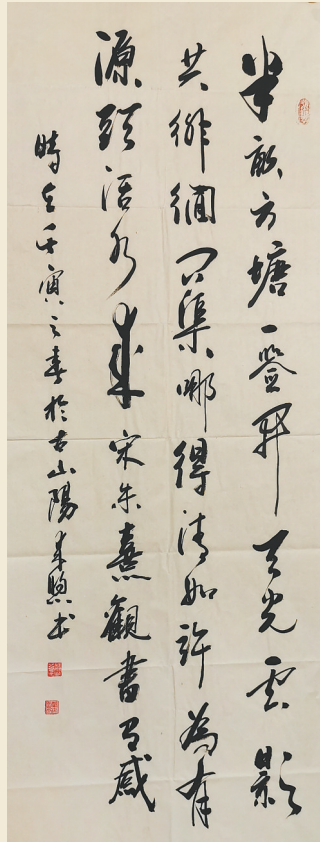 半畝方塘一鉴开天光雲影
共徘徊问渠哪得清如許為有
源頭活水来宋朱熹觀書有感
時在壬寅之春於古山陽来煦书